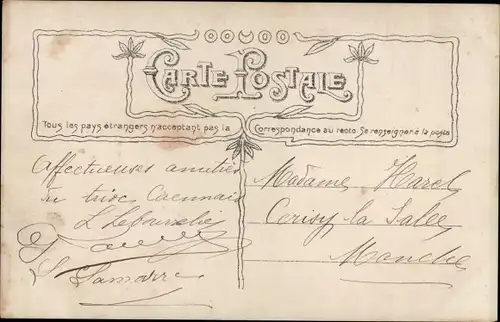 CARTE POSTALE
Tous les pays étrangers n'acceptant pas la Correspondance au recto Se renseigner à la poste
Affectueuses amitiés
du trio Caennais
Madame Harel
Cerisy la Salle
Manche